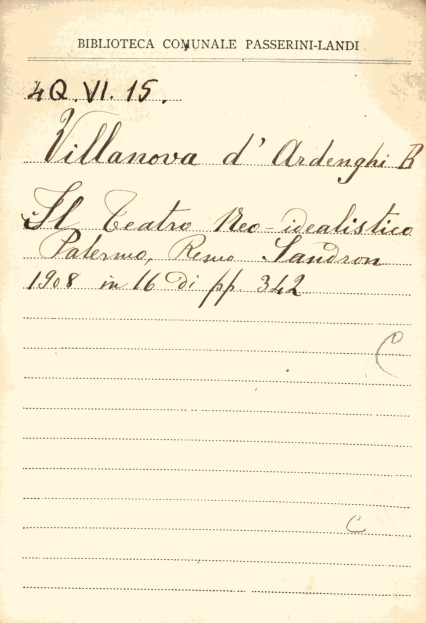 BIBLIOTECA COMUNALE PASSERINI-LANDI
4Q.VI.15.
Villanova d'Ardenghi B
Il Teatro Neo-idealistico
Palermo, Remo Sandron
1908 in 16 di pp. 342
C
C